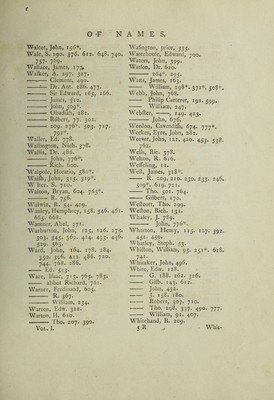 OF NAMES.
Walter, John, 196*.
Wale, S. 190. 376. 612. 648. 740.
757. 769.
Wallace, James, 173.
Walker, A. 297. 327.
—— Clement, 490.
—— Dr. Ant. 286. 473.
—— Sir Edward, 165, 166.
—— James, 312.
—— John, 509*.
—— Obadiah, 281.
—— Robert, 77. 300.
—— 209. 276*. 303. 717.
791*.
Waller, Ed. 378.
Wallington, Nich. 378.
Wallis, Dr. 482.
—— John, 776*.
—— Rich. 600.
Walpole, Horatio, 580*.
Walsh, John, 315. 319*.
Walter. S. 710.
Walton, Bryan, 604. 765*.
—— B. 736.
Walwin, R. 51. 409.
Wanley, Humphrey, 158. 346. 461.
665. 668.
Wanmer, Abel, 372.
Warburton, John, 125, 126. 179.
303. 345. 367. 404. 433. 446.
522. 563.
Ward, John, 164. 178. 184.
350. 396. 411. 486. 720.
744. 768. 186.
—— Ed. 313.
Ware, Isaac, 713. 765. 783.
—— abbot Richard, 761.
Warner, Ferdinand, 605.
—— R. 367.
—— William, 234.
Warren, Edw. 311.
Warton, H. 610.
—— Tho. 207. 390.
Vol. I.
Walington, prior, 335.
Waterhouse, Edward, 700.
Waters, John, 399.
Watson, Dr. 620.
—— 264*. 295.
Watts, James, 165.
—— William, 198*. 372*. 508*.
Webb, John, 768.
—— Philip Carteret, 191. 599.
—— William, 247.
Webster, —— 149. 423.
—— John, 676.
Weedon, Cavendish, 674. 777*.
Weekes, Eyre, John, 282.
Weever, John, 121. 420. 453. 338.
761.
Wells, Ric. 378.
Welson, R. 616.
Wesseling, 11.
West, James, 318*.
—— R. 209. 210. 230. 233. 246.
309*. 619. 711.
—— Tho. 501. 764.
—— Gilbert, 170.
Westcott, Tho. 299.
Weston, Rich. 131.
Whaley, J. 769.
—— John, 776*.
Wharton, Henry, 115. 127. 391.
451. 450.
Whatley, Steph. 53.
Whiston, William, 59. 251*. 618.
741.
Whitaker, John, 496.
White, Edw. 128.
—— G. 188. 262. 326.
—— Gilb. 143. 612.
—— John, 432.
—— J. 158. 180.
—— Robert, 307. 710.
—— Tho. 298. 357. 490. 777.
—— William, 91. 407.
Whitehand, R. 209.
3 R
Whit-